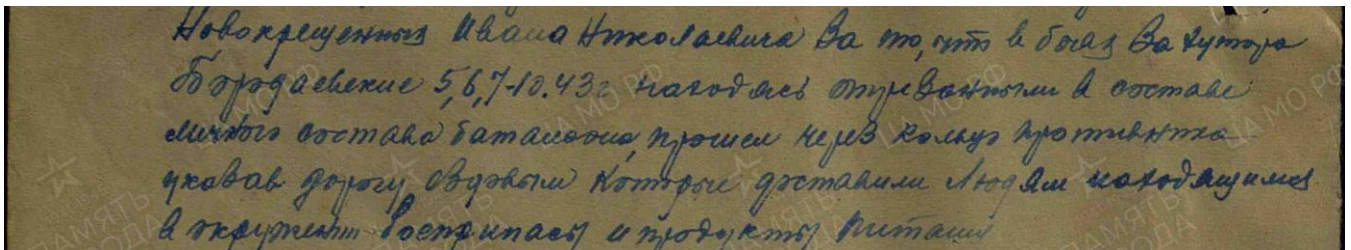 Новокрещенных Ивана Николаевича За то, что в боях За хутора
Бородаевские 5,6,7-10.43г находясь отрезанными в составе
личного состава батальона, прошел через кольцо противника
указав дорогу ездовым которые доставили Людям находящимся
в окружении боеприпасы и продукты питания